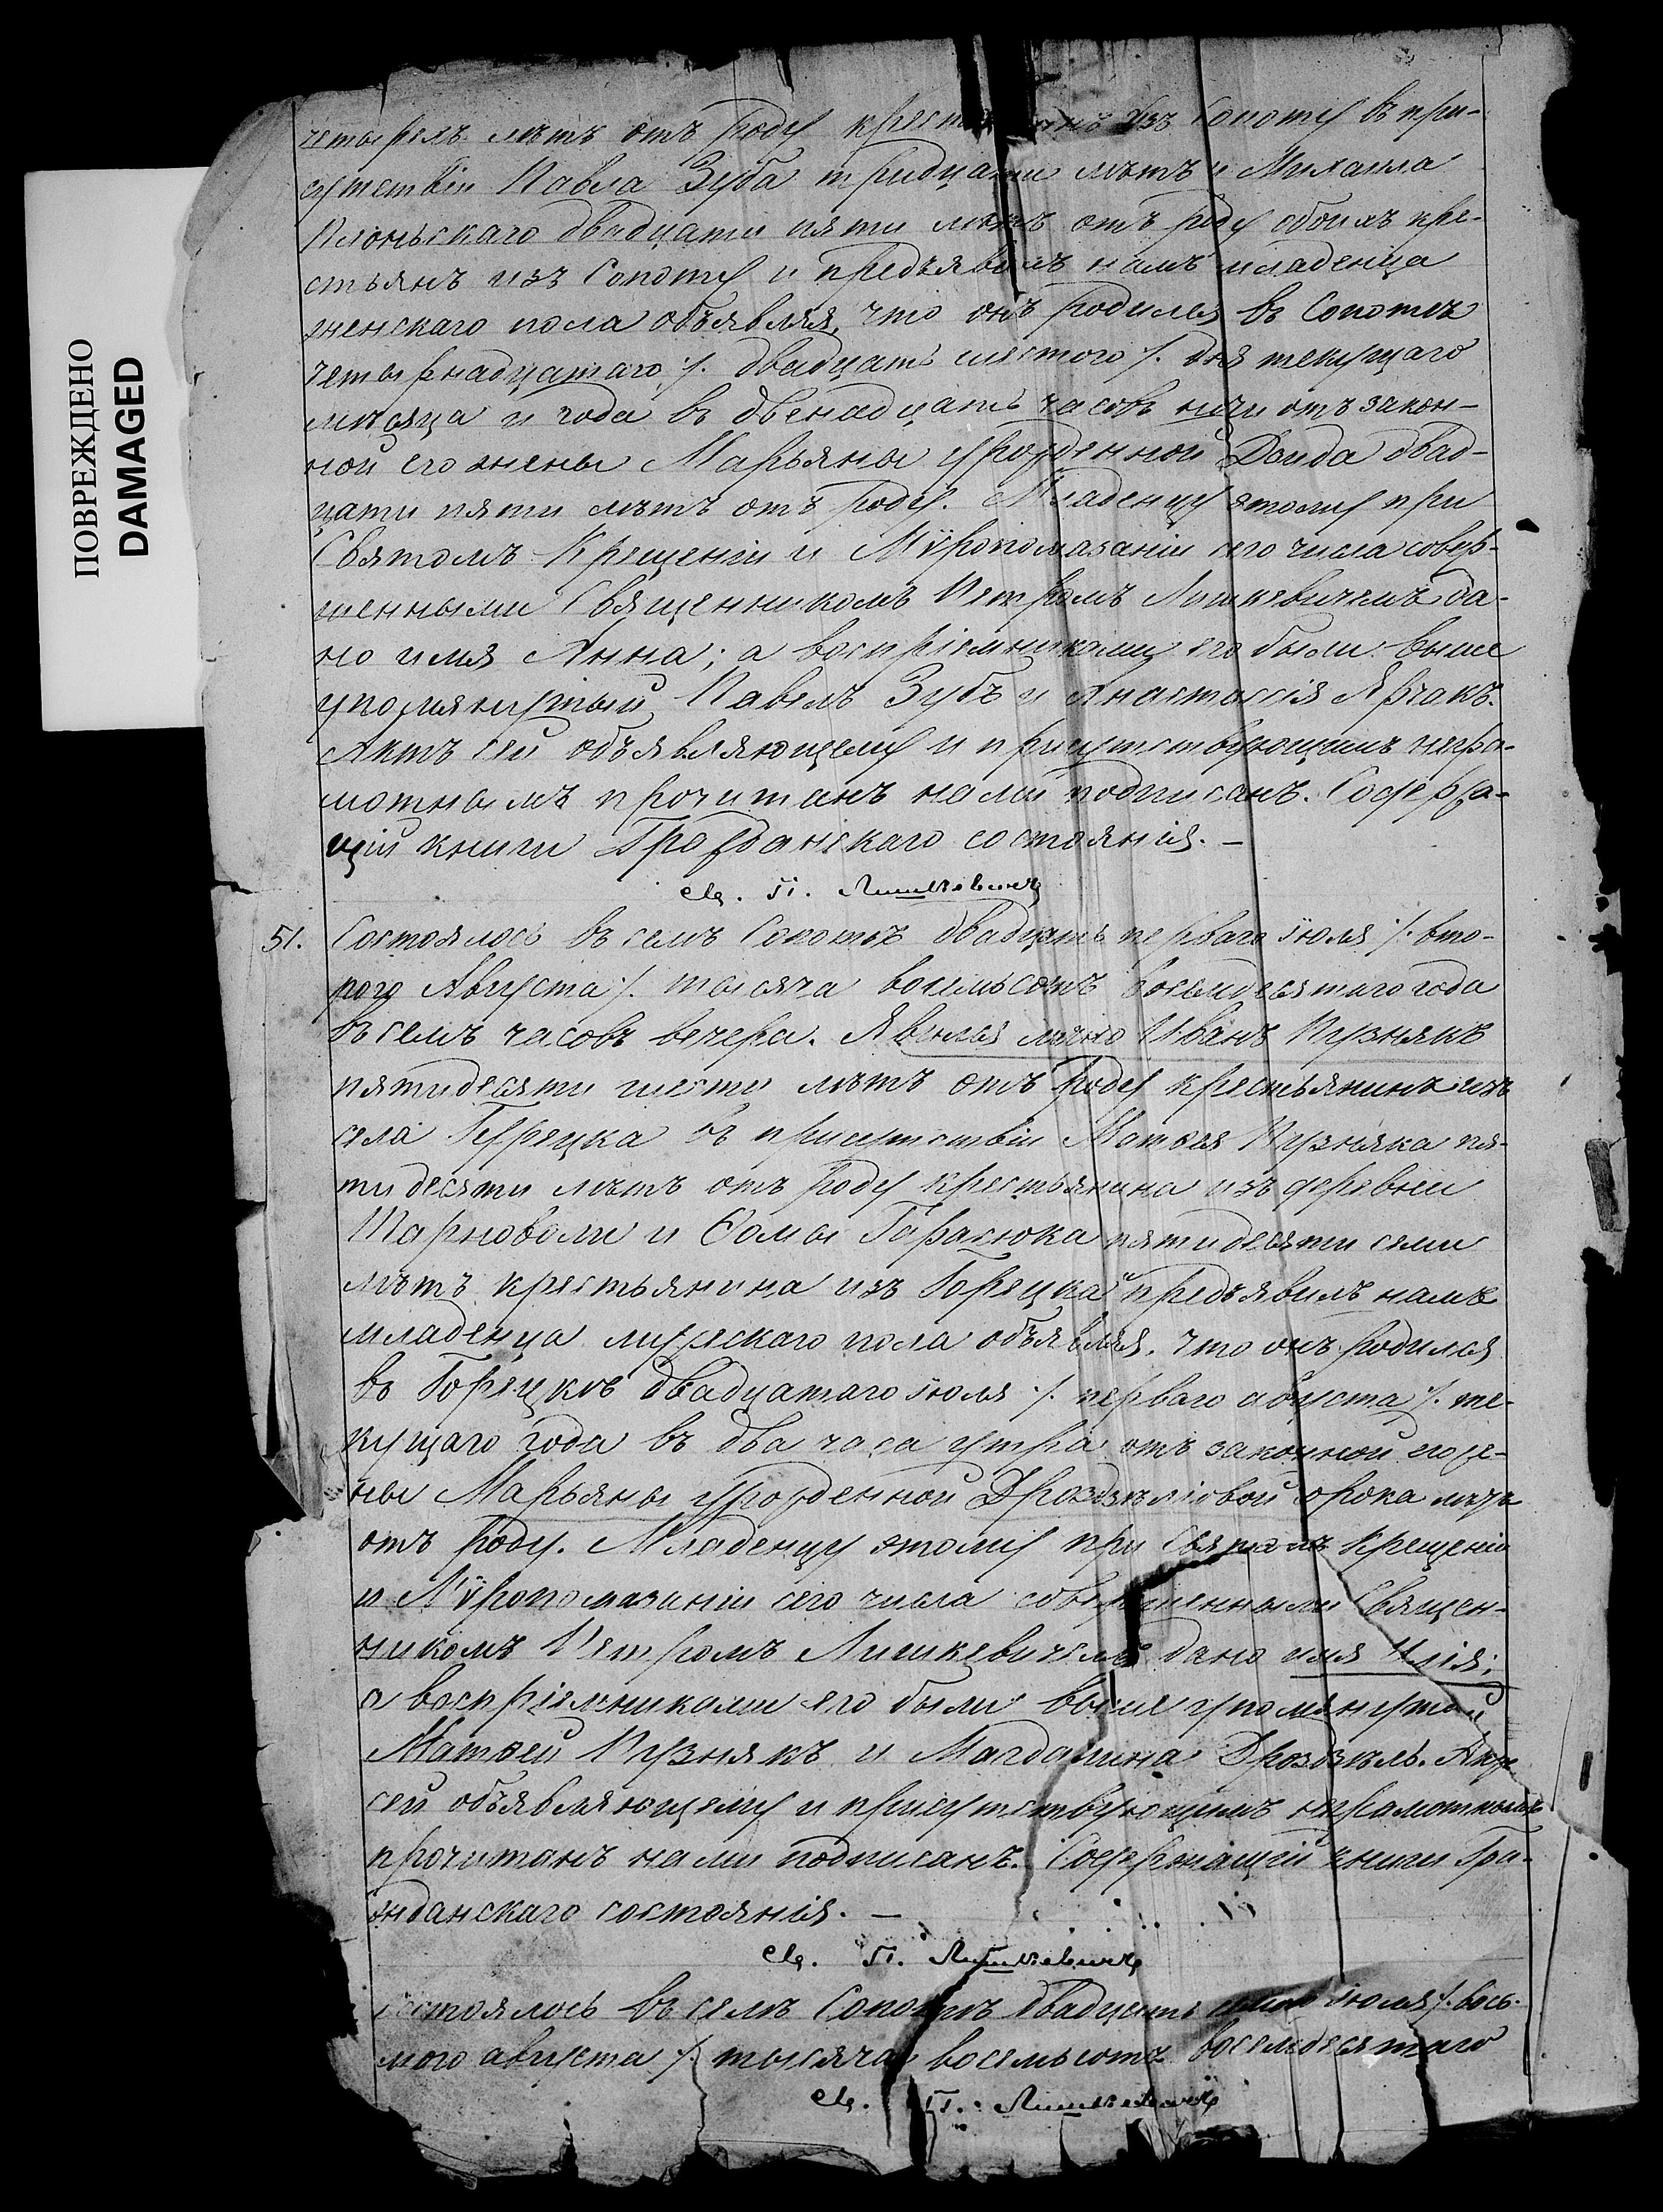 ПОВРЕЖДЕНО
DAMAGED
четырехъ лѣтъ отъ роду изъ Сопоту въ при-
сутствіи Павла Зуба тридцати лѣтъ и Михаила
двадцати пяти лѣтъ отъ роду обоихъ кре-
стьянъ изъ Сопоту и предъявилъ намъ младенца
женскаго пола объявляя, что онъ родился въ Сопотѣ
четырнадцатаго /. двадцать шестого /. дня текущаго
мѣсяца и года въ двенадцать часовъ ночи отъ закон-
ной его жены Марьяны урожденной двад-
цати пяти лѣтъ отъ роду. Младенцу этому при
Святомъ Крещеніи и Мѵропомазаніи сего числа совер-
шенными Священникомъ Петромъ Лишкевичемъ да-
но имя Анна; а воспріемниками его были выше
упомянутый Павелъ Зубъ и Анастасія
Актъ сей объявляющему и присутствующимъ негра-
мотнымъ прочитанъ нами подписанъ. Содержа-
щій книги Гражданскаго состоянія. —
Св. П. Лишкевичъ
51. Состоялось въ селѣ Сопотѣ двадцать перваго Іюля /. вто-
рого Августа /. тысяча восемьсотъ восьмидесятаго года
въ семъ часовъ вечера. Явился лично Иванъ Пузнякъ
пятидесяти шести лѣтъ отъ роду крестьянинъ изъ
села Горецка въ присутствіи Матвея Пузняка пя-
тидесяти лѣтъ отъ роду крестьянина изъ деревни
Тарноволи и Ѳомы Гарасюка пятидесяти семи
лѣтъ крестьянина изъ Горецка и предъявилъ намъ
младенца мужескаго пола объявляя, что онъ родился
въ Горецкѣ двадцатаго Іюля /. перваго августа /. те-
кущаго года въ два часа утра отъ законной его же-
ны Марьяны урожденной сорока лѣтъ
отъ роду. Младенцу этому при Святомъ Крещеніи
и Мѵропомазаніи сего числа совершенными Священ-
никомъ Петромъ Лишкевичемъ дано имя Илія;
а воспріемниками его были выше упомянутый
Матвей Пузнякъ и Магдалина Актъ
сей объявляющему и присутствующимъ неграмотнымъ
прочитанъ нами подписанъ. Содержащій книги Гра-
жданскаго состоянія. —
Св. П. Лишкевичъ
Состоялось въ селѣ Сопотѣ двадцать Іюля /. вось-
мого августа /. тысяча восемьсотъ восемдесятаго
Св. П. Лишкевичъ